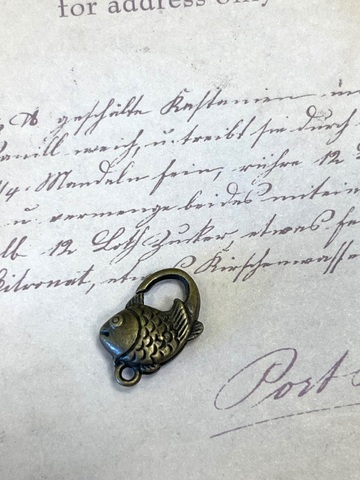 for address only
℔ geschälte Kastanien in
Vanill weich, u. treibt sie durch
1/4. Mandeln fein, rühre 12
u. vermenge beides mitein
12 Loth Zucker, etwas fe
Citronat, etwas Kirschenwasse
Post